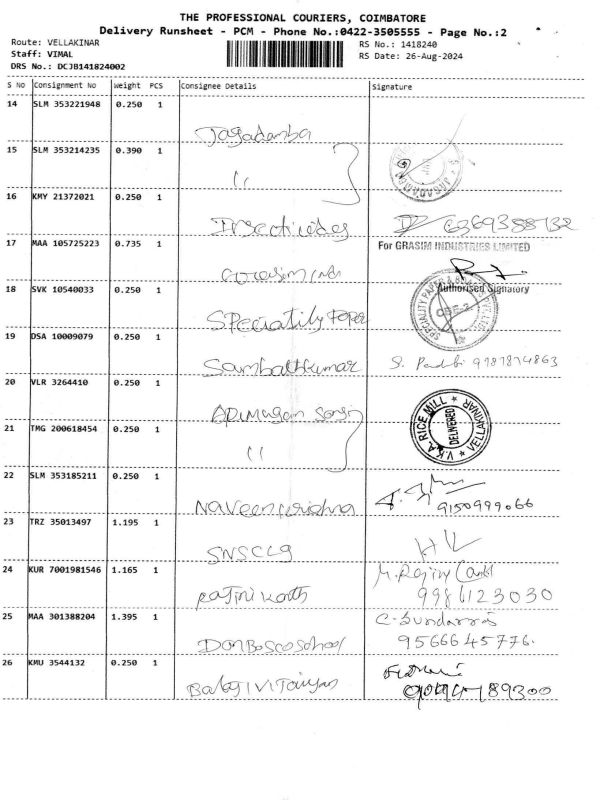 THE PROFESSIONAL COURIERS, COIMBATORE
Delivery Runsheet - PCM - Phone No.:0422-3505555 - Page No.:2
Route: VELLAKINAR
RS No.: 1418240
Staff: VIMAL
RS Date: 26-Aug-2024
DRS No.: DCJB141824002
S No Consignment No Weight PCS Consignee Details Signature
14 SLM 353221948 0.250 1
Jagadamba
15 SLM 353214235 0.390 1
11
16 KMY 21372021 0.250 1
Insecticides 6369388732
17 MAA 105725223 0.735 1
For GRASIM INDUSTRIES LIMITED
Grasim ind
18 SVK 10540033 0.250 1
Authorised Signatory
Speciatily Paper
19 DSA 10009079 0.250 1
Sambathkumar
20 VLR 3264410 0.250 1
Arumugam Sons
V.K.A. RICE MILL ★ VELLAKINAR ★
DELIVERED
21 TMG 200618454 0.250 1
11
22 SLM 353185211 0.250 1
Naveen Krishna 9150999066
23 TRZ 35013497 1.195 1
SNSCLG
24 KUR 7001981546 1.165 1
Rajini Kanth 9986123030
25 MAA 301388204 1.395 1
C. Sundarraj
DonBoscoSchool 9566645776.
26 KMU 3544132 0.250 1